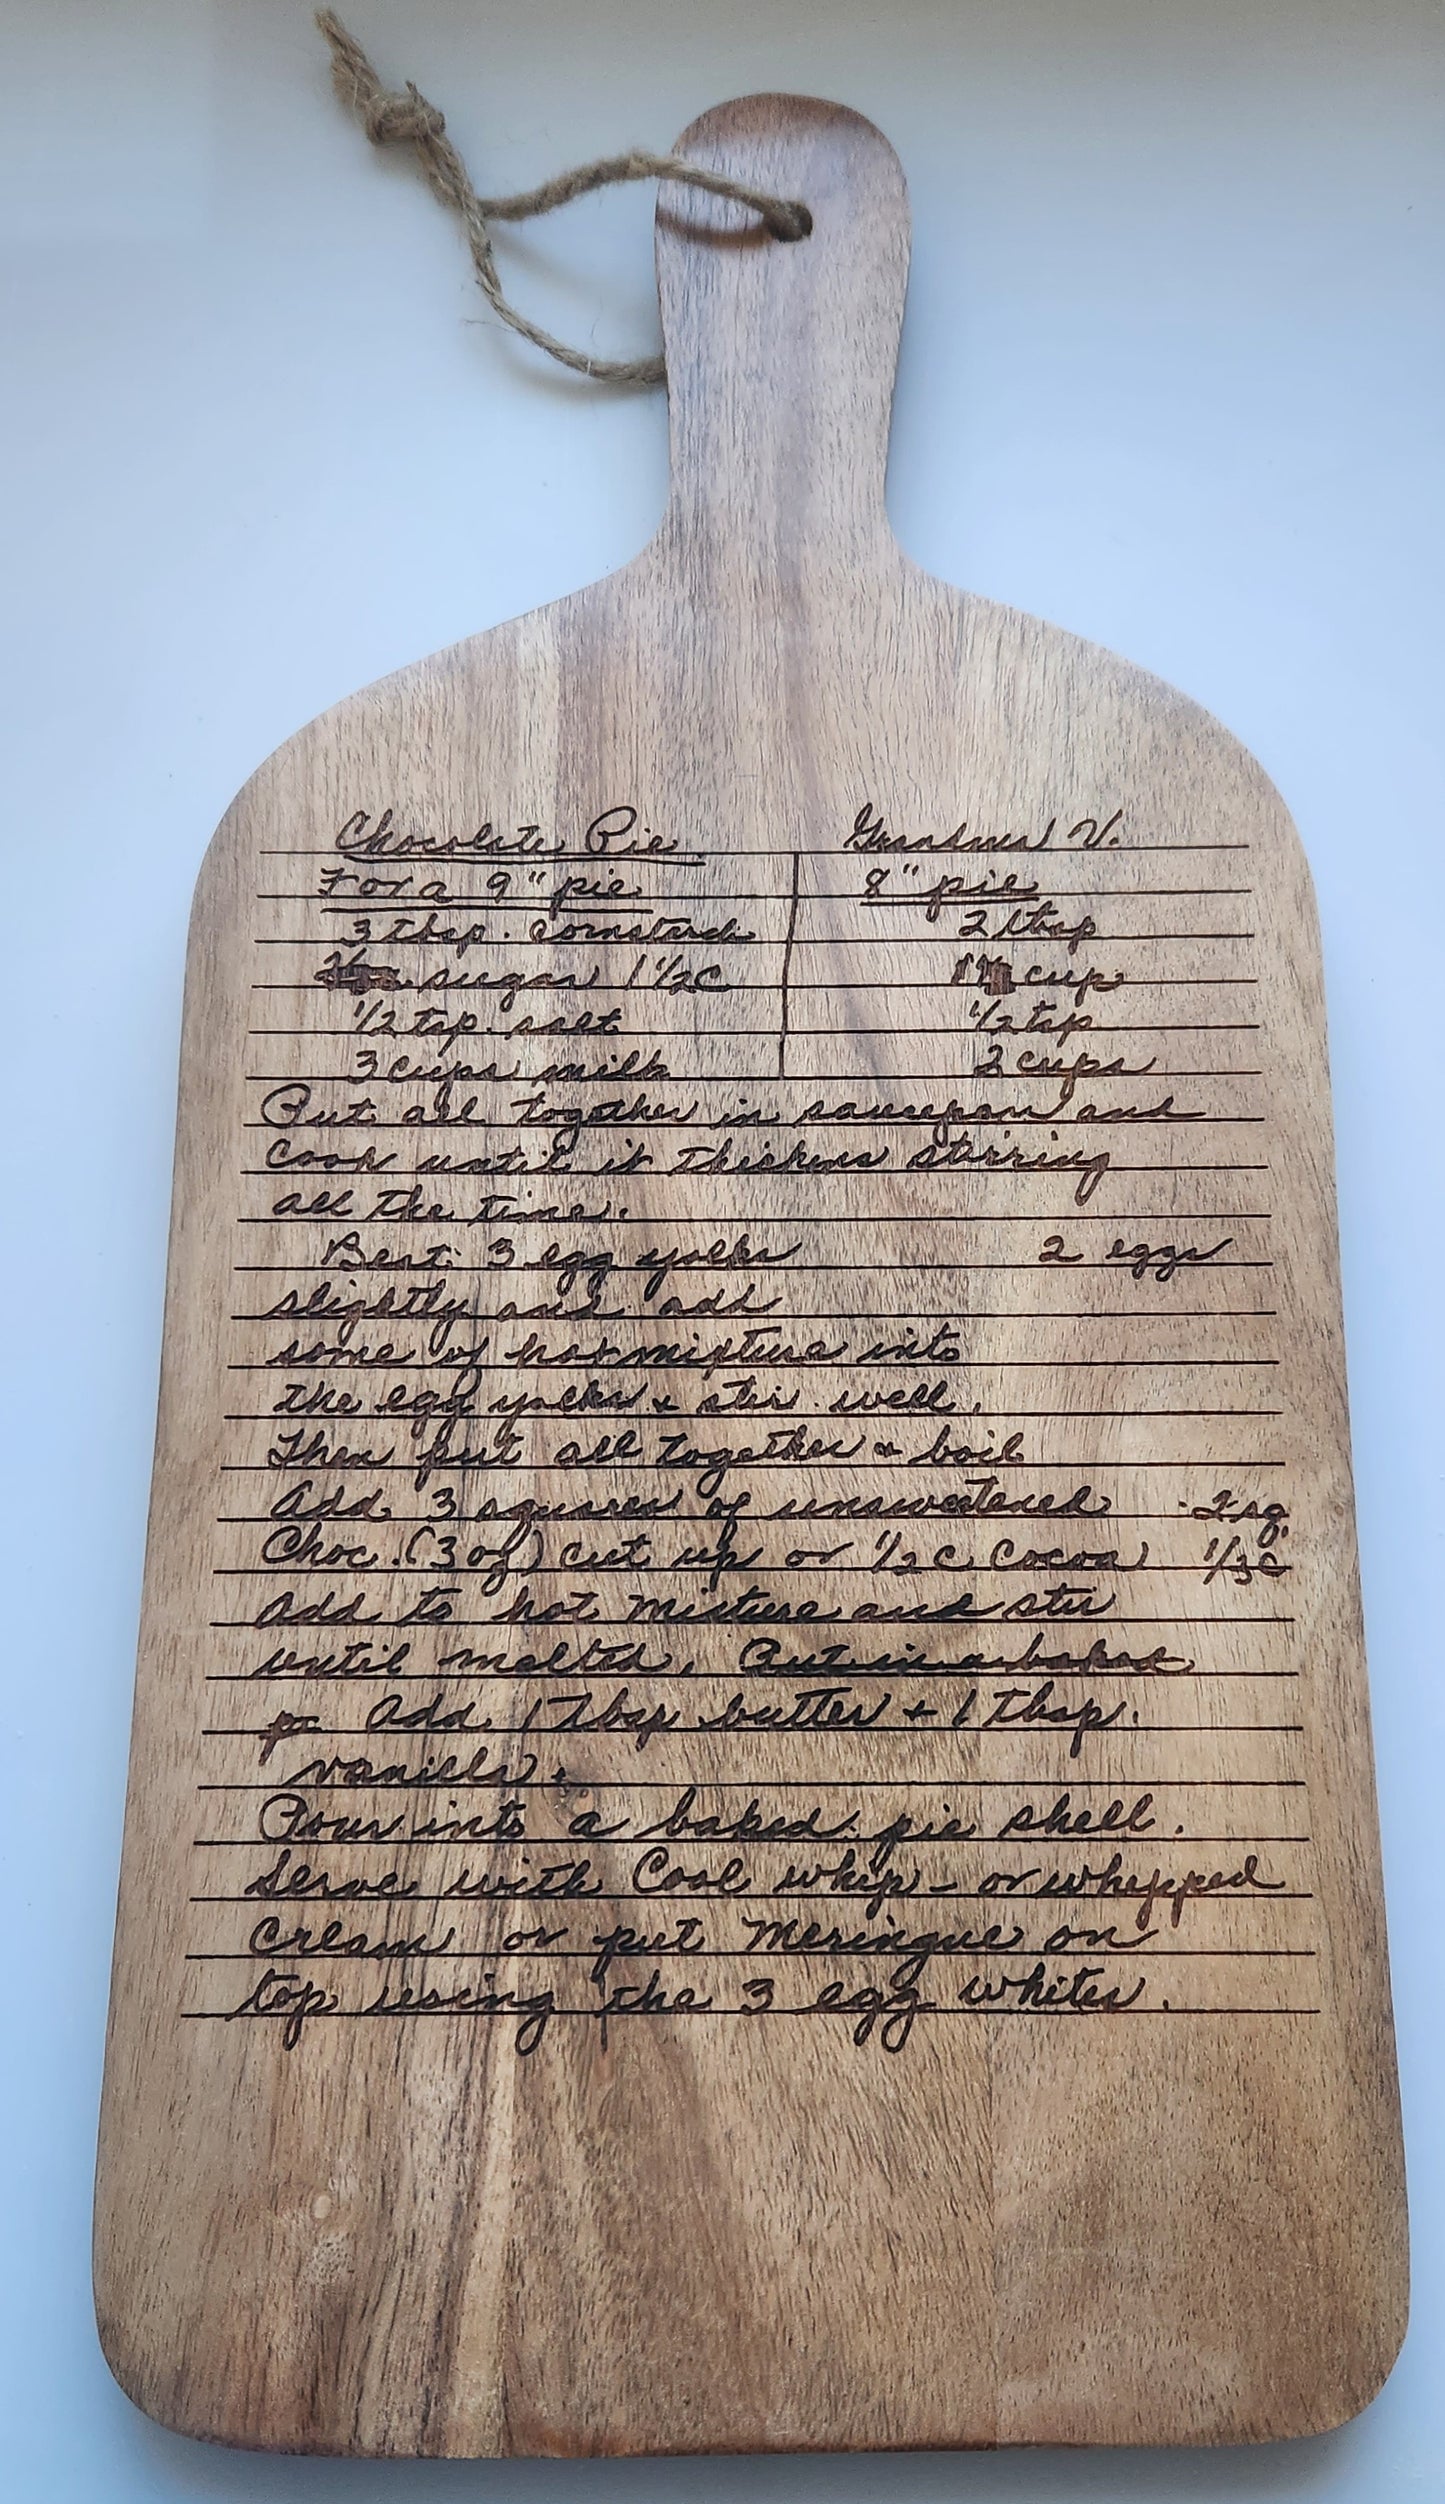 Chocolate Pie Grandma V.
For a 9" pie 8" pie
3 tbsp. cornstarch 2 tbsp
sugar 1 1/2 C 1 cup
1/2 tsp. salt 1/2 tsp
3 cups milk 2 cups
Put all together in saucepan and
cook until it thickens stirring
all the time.
Beat 3 egg yolks 2 eggs
slightly and add
some of hot mixture into
the egg yolks & stir well.
Then put all together & boil
Add 3 squares of unsweetened 2 sq.
Choc. (3 oz) cut up or 1/2 C Cocoa 1/3 C
Add to hot mixture and stir
until melted. Put in a baked
p Add 1 Tbsp butter + 1 Tbsp.
vanilla.
Pour into a baked pie shell.
Serve with Cool whip - or whipped
cream or put meringue on
top using the 3 egg whites.